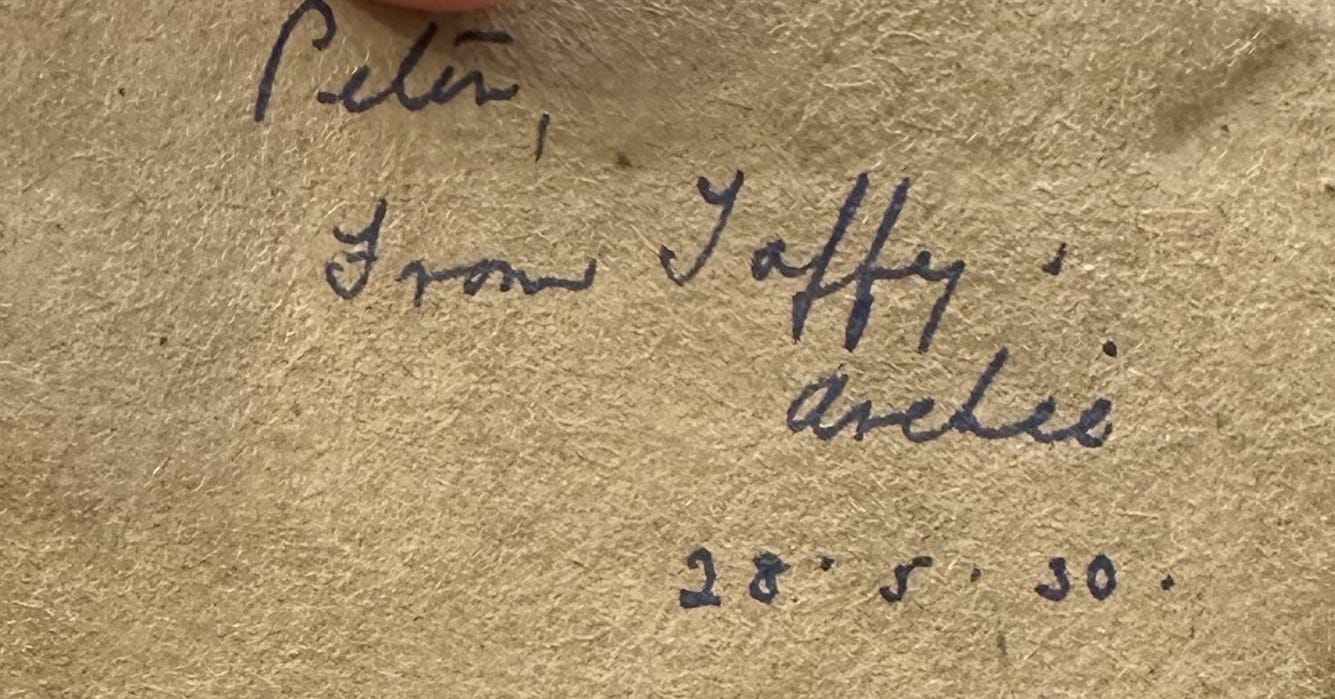 Peter,
From Taffy.
Archie
28.5.30.